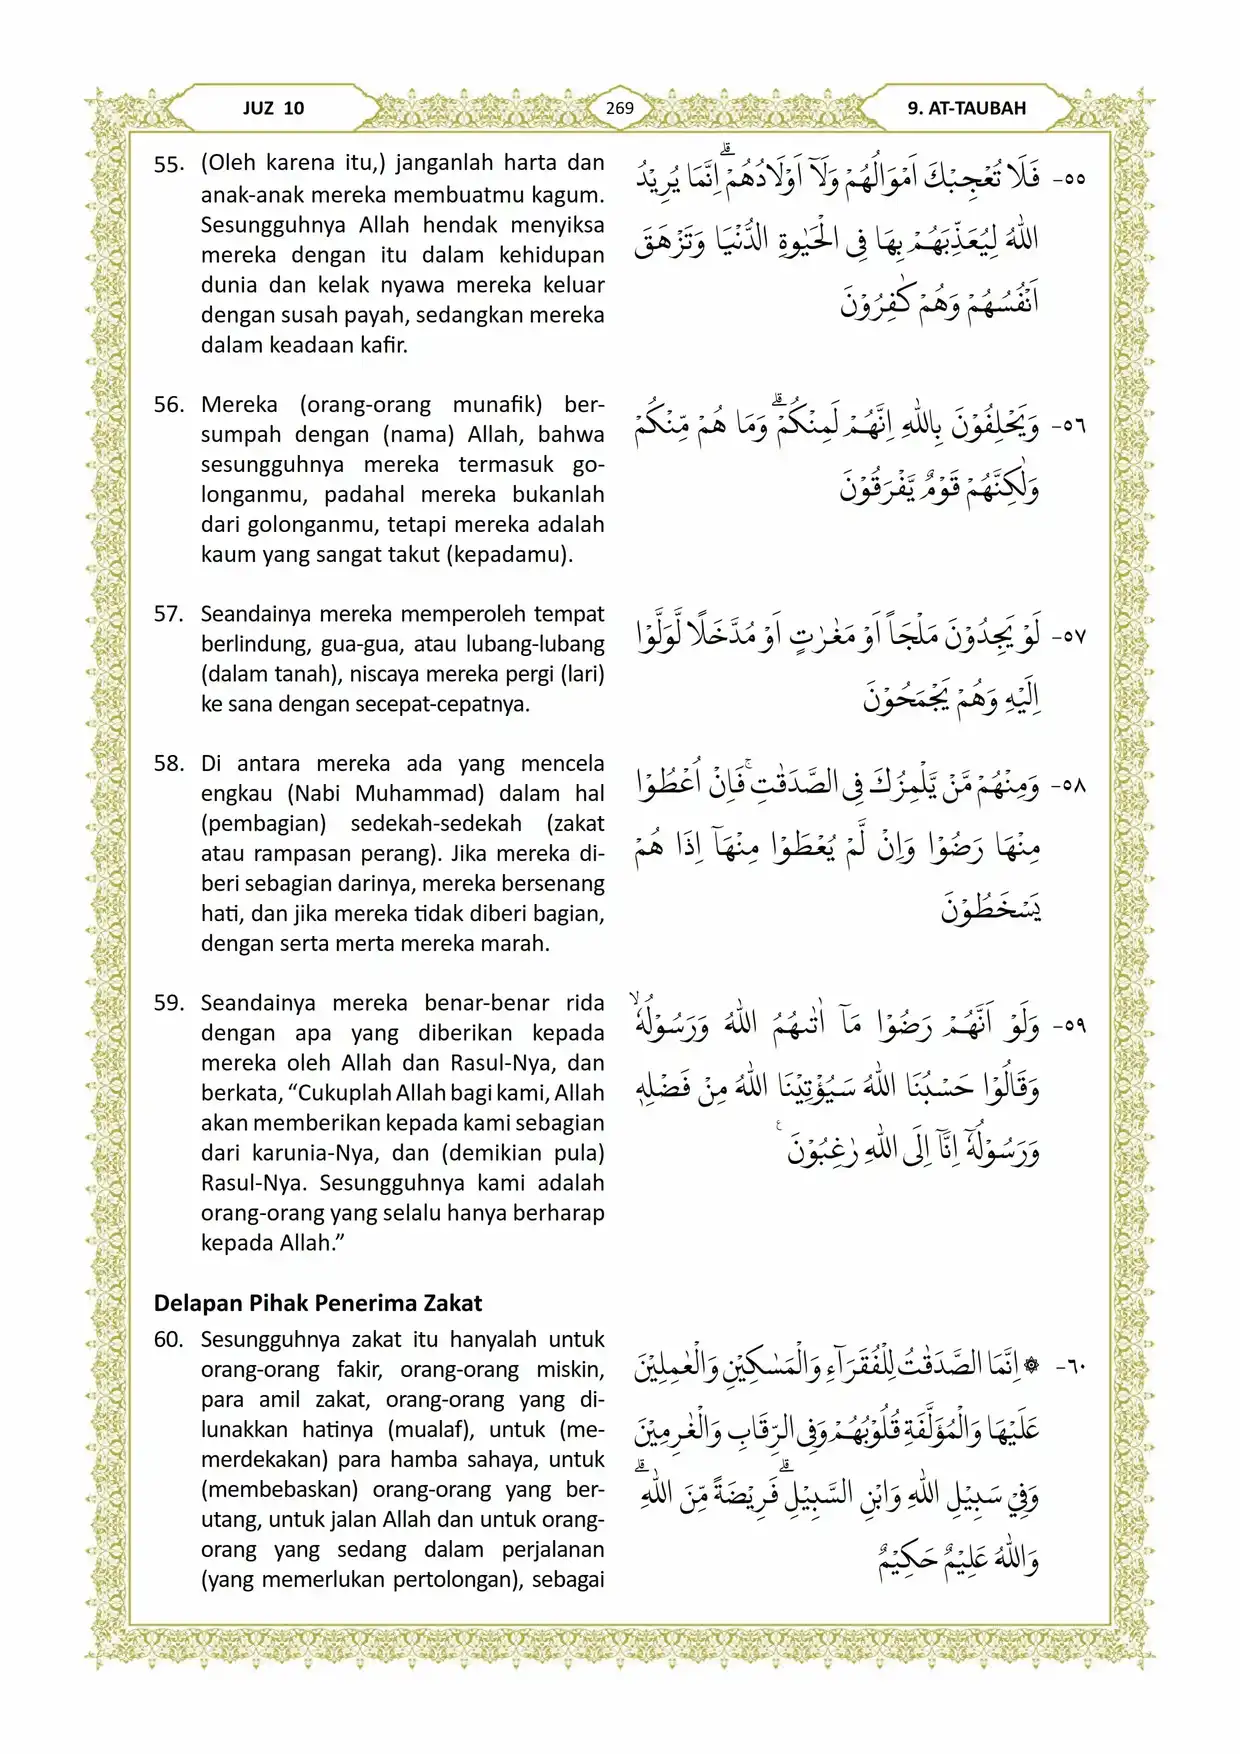 JUZ 10
269
9. AT-TAUBAH
55. (Oleh karena itu,) janganlah harta dan
anak-anak mereka membuatmu kagum.
Sesungguhnya Allah hendak menyiksa
mereka dengan itu dalam kehidupan
dunia dan kelak nyawa mereka keluar
dengan susah payah, sedangkan mereka
dalam keadaan kafir.
٥٥- فَلَا تُعْجِبْكَ اَمْوَالُهُمْ وَلَآ اَوْلَادُهُمْ ۗاِنَّمَا يُرِيْدُ
اللّٰهُ لِيُعَذِّبَهُمْ بِهَا فِى الْحَيٰوةِ الدُّنْيَا وَتَزْهَقَ
اَنْفُسُهُمْ وَهُمْ كٰفِرُوْنَ
56. Mereka (orang-orang munafik) ber-
sumpah dengan (nama) Allah, bahwa
sesungguhnya mereka termasuk go-
longanmu, padahal mereka bukanlah
dari golonganmu, tetapi mereka adalah
kaum yang sangat takut (kepadamu).
٥٦- وَيَحْلِفُوْنَ بِاللّٰهِ اِنَّهُمْ لَمِنْكُمْۗ وَمَا هُمْ مِّنْكُمْ
وَلٰكِنَّهُمْ قَوْمٌ يَّفْرَقُوْنَ
57. Seandainya mereka memperoleh tempat
berlindung, gua-gua, atau lubang-lubang
(dalam tanah), niscaya mereka pergi (lari)
ke sana dengan secepat-cepatnya.
٥٧- لَوْ يَجِدُوْنَ مَلْجَاً اَوْ مَغٰرٰتٍ اَوْ مُدَّخَلًا لَّوَلَّوْا
اِلَيْهِ وَهُمْ يَجْمَحُوْنَ
58. Di antara mereka ada yang mencela
engkau (Nabi Muhammad) dalam hal
(pembagian) sedekah-sedekah (zakat
atau rampasan perang). Jika mereka di-
beri sebagian darinya, mereka bersenang
hati, dan jika mereka tidak diberi bagian,
dengan serta merta mereka marah.
٥٨- وَمِنْهُمْ مَّنْ يَّلْمِزُكَ فِى الصَّدَقٰتِۚ فَاِنْ اُعْطُوْا
مِنْهَا رَضُوْا وَاِنْ لَّمْ يُعْطَوْا مِنْهَآ اِذَا هُمْ
يَسْخَطُوْنَ
59. Seandainya mereka benar-benar rida
dengan apa yang diberikan kepada
mereka oleh Allah dan Rasul-Nya, dan
berkata, “Cukuplah Allah bagi kami, Allah
akan memberikan kepada kami sebagian
dari karunia-Nya, dan (demikian pula)
Rasul-Nya. Sesungguhnya kami adalah
orang-orang yang selalu hanya berharap
kepada Allah.”
٥٩- وَلَوْ اَنَّهُمْ رَضُوْا مَآ اٰتٰىهُمُ اللّٰهُ وَرَسُوْلُهٗۙ
وَقَالُوْا حَسْبُنَا اللّٰهُ سَيُؤْتِيْنَا اللّٰهُ مِنْ فَضْلِهٖ
وَرَسُوْلُهٗٓ اِنَّآ اِلَى اللّٰهِ رٰغِبُوْنَ ࣖ
Delapan Pihak Penerima Zakat
60. Sesungguhnya zakat itu hanyalah untuk
orang-orang fakir, orang-orang miskin,
para amil zakat, orang-orang yang di-
lunakkan hatinya (mualaf), untuk (me-
merdekakan) para hamba sahaya, untuk
(membebaskan) orang-orang yang ber-
utang, untuk jalan Allah dan untuk orang-
orang yang sedang dalam perjalanan
(yang memerlukan pertolongan), sebagai
٦٠- ۞ اِنَّمَا الصَّدَقٰتُ لِلْفُقَرَاۤءِ وَالْمَسٰكِيْنِ وَالْعٰمِلِيْنَ
عَلَيْهَا وَالْمُؤَلَّفَةِ قُلُوْبُهُمْ وَفِى الرِّقَابِ وَالْغٰرِمِيْنَ
وَفِيْ سَبِيْلِ اللّٰهِ وَابْنِ السَّبِيْلِۗ فَرِيْضَةً مِّنَ اللّٰهِ ۗ
وَاللّٰهُ عَلِيْمٌ حَكِيْمٌ